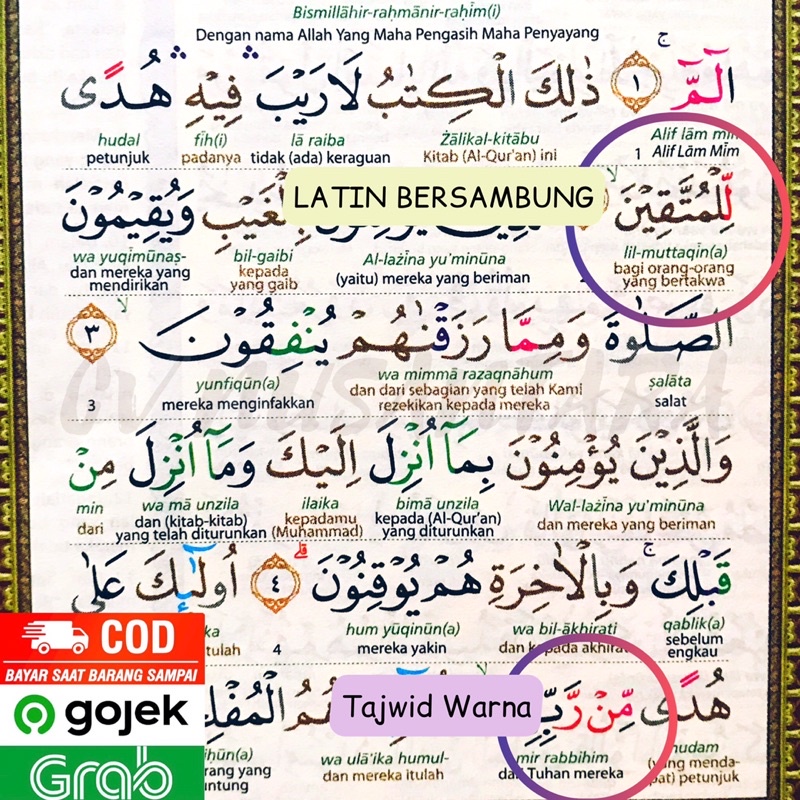 Bismillāhir-raḥmānir-raḥīm(i)
Dengan nama Allah Yang Maha Pengasih Maha Penyayang
الۤمّۤ ۚ ١ ذٰلِكَ الْكِتٰبُ لَا رَيْبَ ۛ فِيْهِ ۛ هُدًى
hudal fīh(i) lā raiba Żālikal-kitābu Alif lām mīm
petunjuk padanya tidak (ada) keraguan Kitab (Al-Qur'an) ini 1 Alif Lām Mīm
لِّلْمُتَّقِيْنَ بِالْغَيْبِ وَيُقِيْمُوْنَ
LATIN BERSAMBUNG
wa yuqīmūnaṣ- bil-gaibi Al-lażīna yu'minūna lil-muttaqīn(a)
dan mereka yang mendirikan kepada yang gaib (yaitu) mereka yang beriman bagi orang-orang yang bertakwa
الصَّلٰوةَ وَمِمَّا رَزَقْنٰهُمْ يُنْفِقُوْنَ ۙ ٣
yunfiqūn(a) wa mimmā razaqnāhum ṣalāta
3 mereka menginfakkan dan dari sebagian yang telah Kami rezekikan kepada mereka salat
وَالَّذِيْنَ يُؤْمِنُوْنَ بِمَآ اُنْزِلَ اِلَيْكَ وَمَآ اُنْزِلَ مِنْ
min wa mā unzila ilaika bimā unzila Wal-lażīna yu'minūna
dari dan (kitab-kitab) yang telah diturunkan kepadamu (Muhammad) kepada (Al-Qur'an) yang diturunkan dan mereka yang beriman
قَبْلِكَ ۚ وَبِالْاٰخِرَةِ هُمْ يُوْقِنُوْنَ ۗ ٤ اُولٰۤىِٕكَ عَلٰى
hum yūqinūn(a) wa bil-ākhirati qablik(a)
4 mereka yakin dan kepada akhirat sebelum engkau
COD
BAYAR SAAT BARANG SAMPAI
gojek
Grab
هُدًى مِّنْ رَّبِّهِمْ
Tajwid Warna
wa ulā'ika humul- mir rabbihim hudam
dan mereka itulah dari Tuhan mereka (yang mendapat) petunjuk